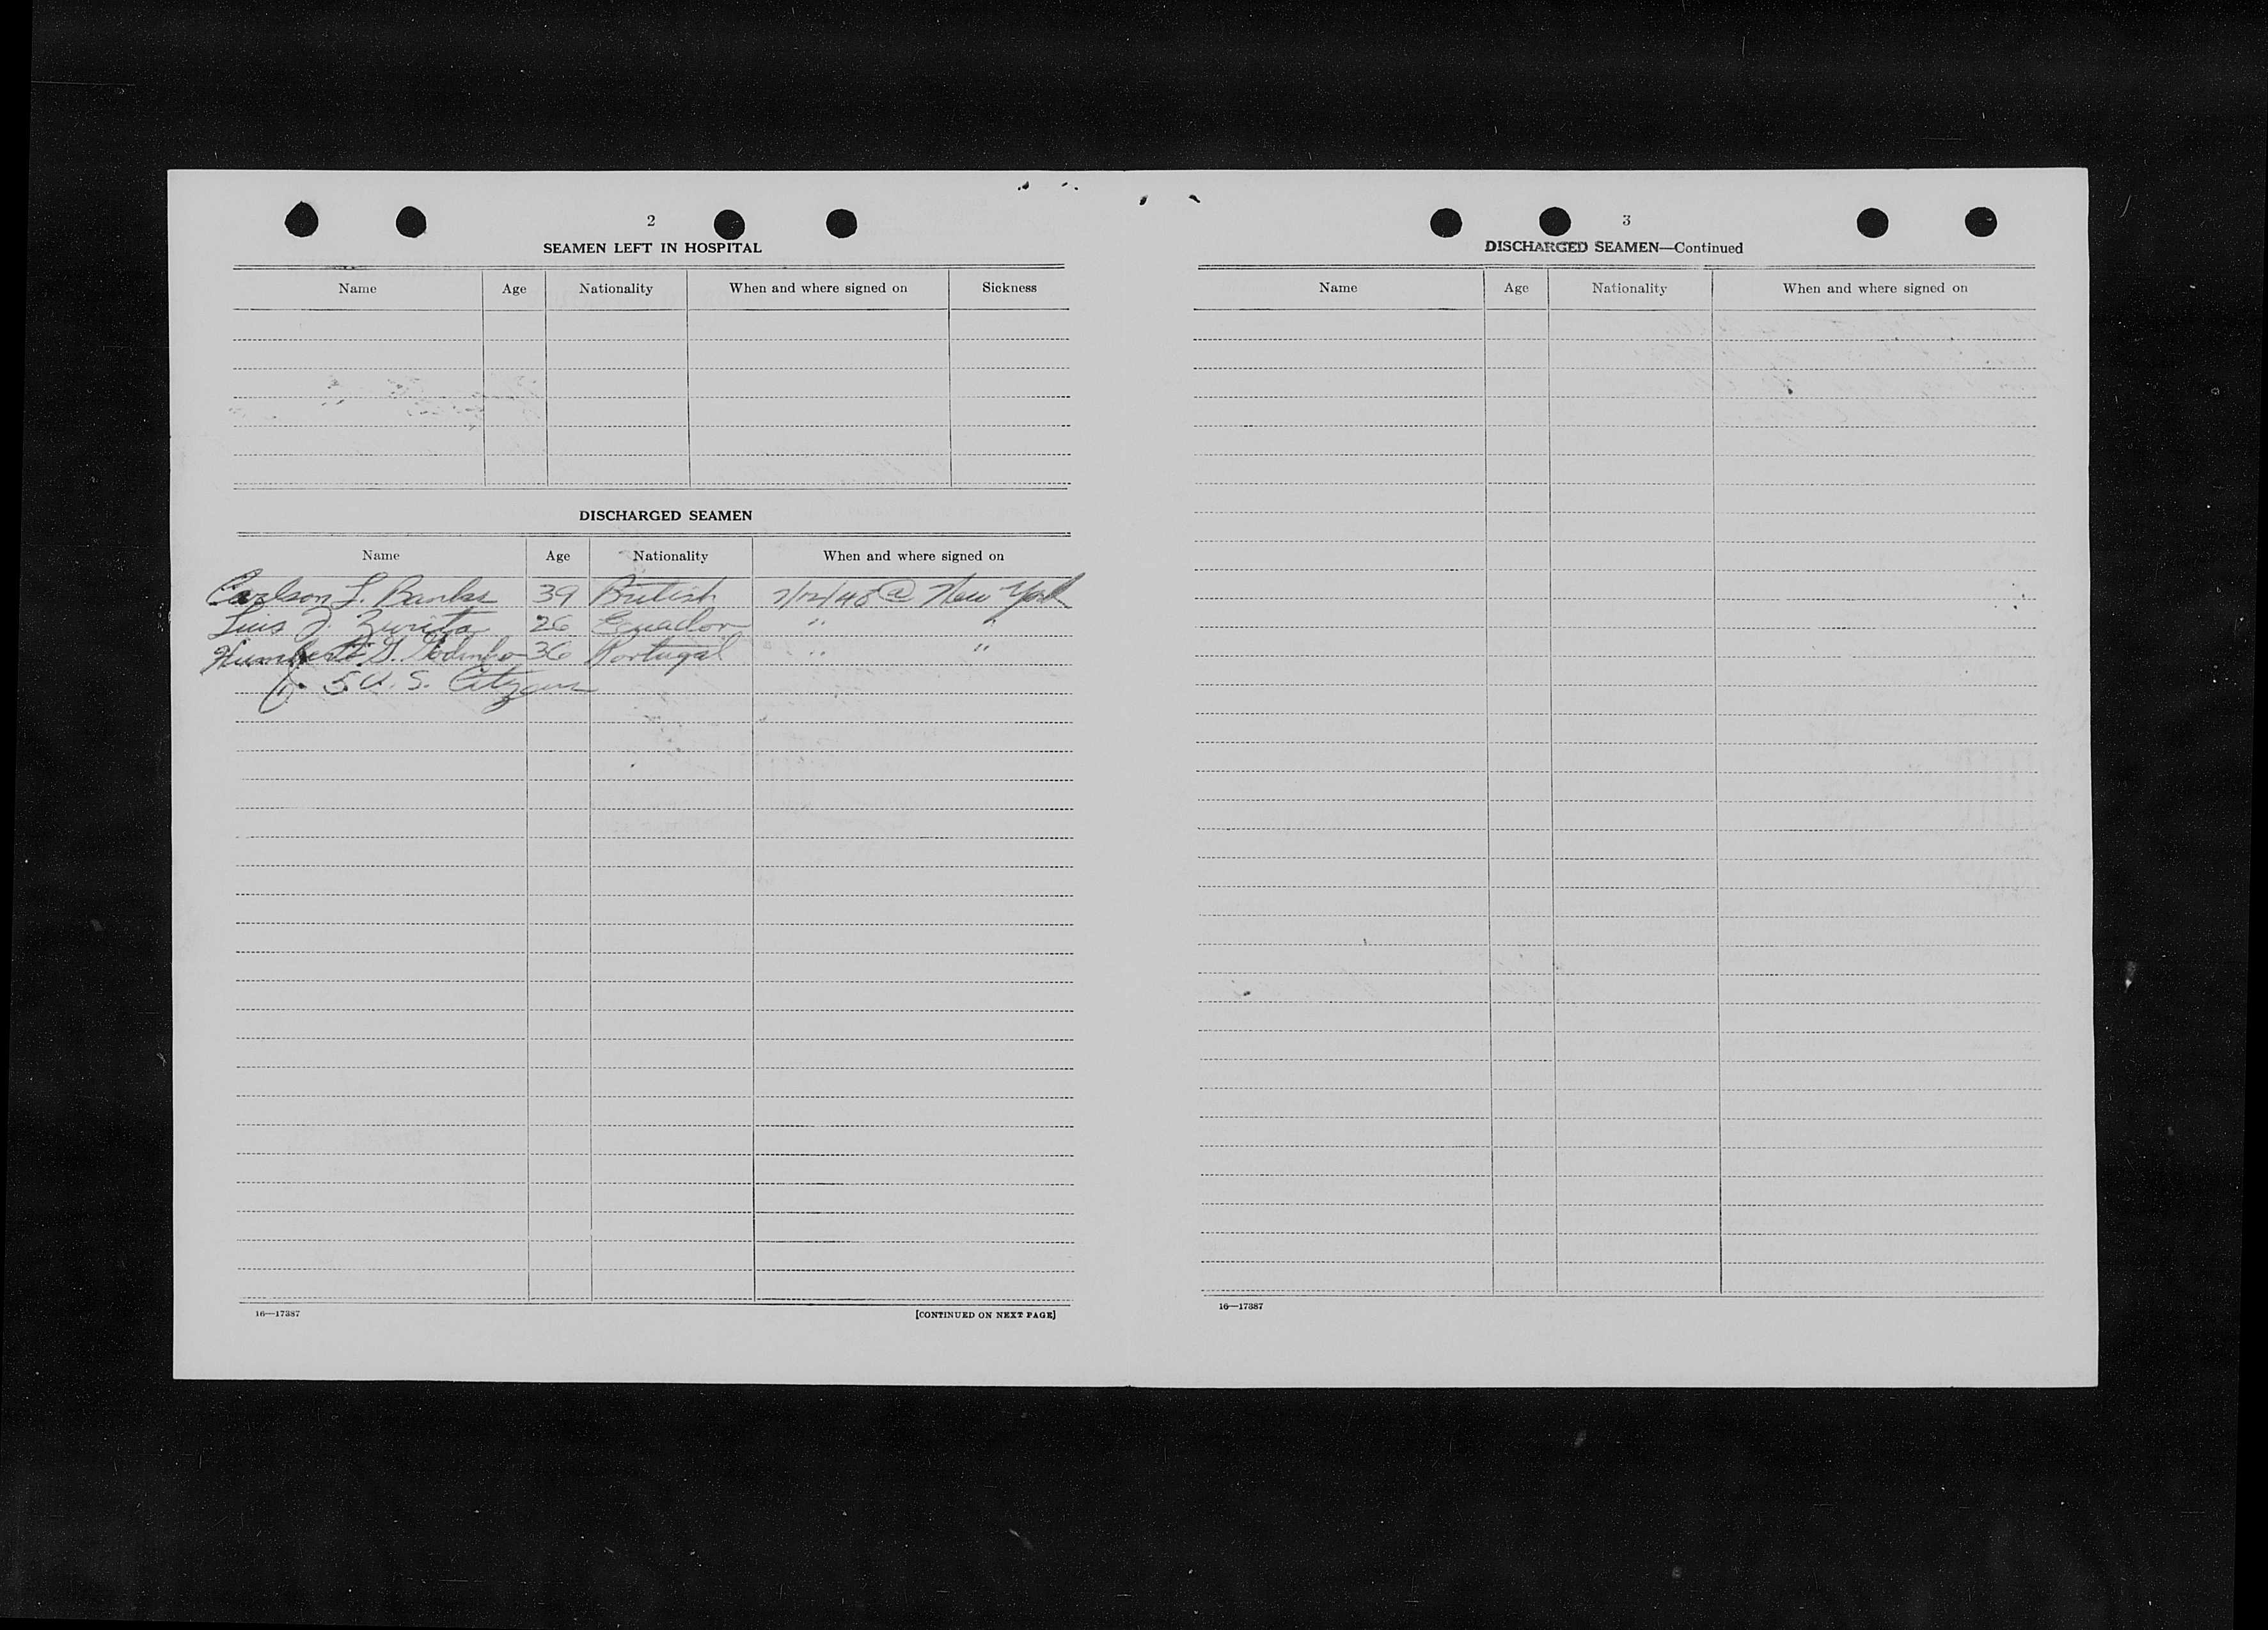 2
SEAMEN LEFT IN HOSPITAL
Name Age Nationality When and where signed on Sickness
DISCHARGED SEAMEN
Name Age Nationality When and where signed on
Carlson L. Banks 39 British 7/12/48 @ New York
Luis J. Zurita 26 Ecuador " "
Humberto G. Godinho 36 Portugal " "
5 U.S. Citizens
16—17387 [CONTINUED ON NEXT PAGE]
3
DISCHARGED SEAMEN—Continued
Name Age Nationality When and where signed on
16—17387